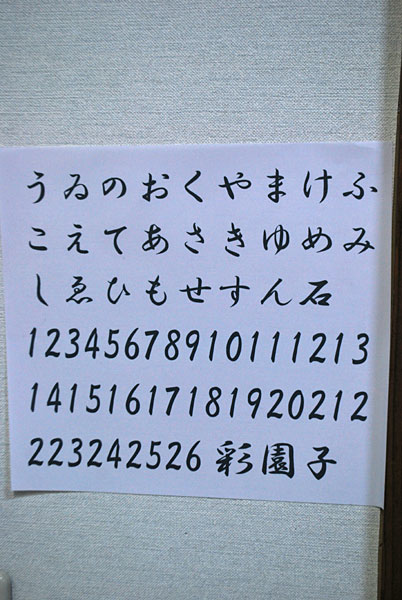 うゐのおくやまけふ
こえてあさきゆめみ
しゑひもせすん石
12345678910111213
14151617181920212
223242526 彩園子